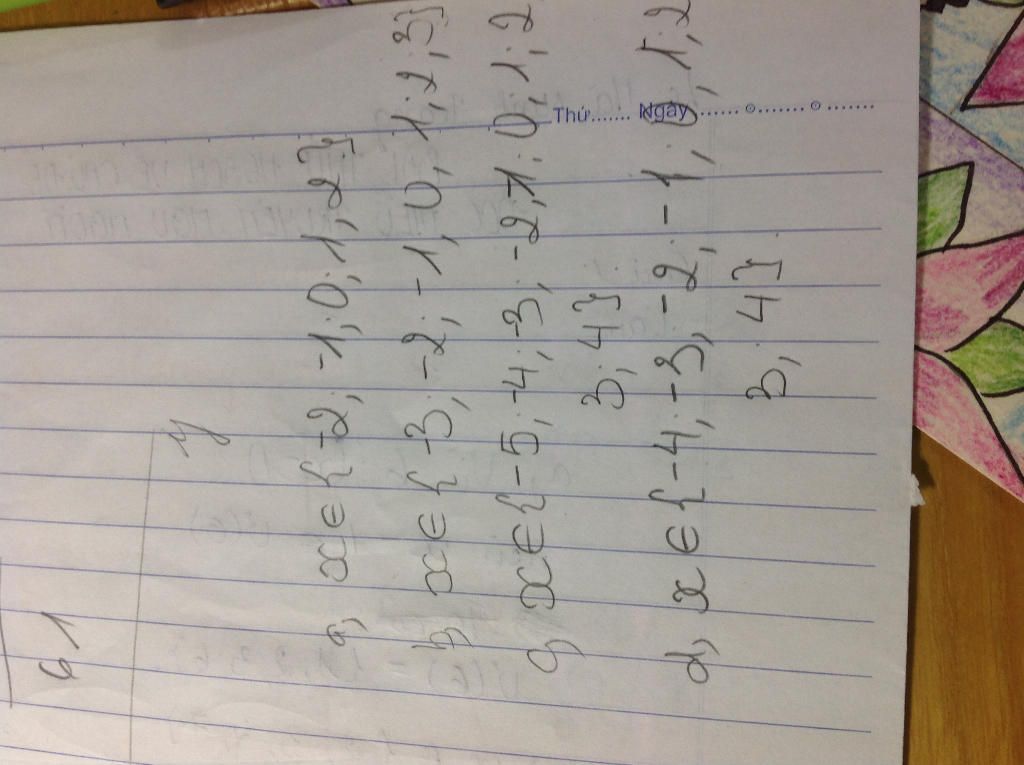 61
a, x ∈ {-2; -1; 0; 1; 2}
b, x ∈ {-3; -2; -1; 0; 1; 2; 3}
c, x ∈ {-5; -4; -3; -2; -1; 0; 1; 2
3; 4}
d, x ∈ {-4; -3; -2; -1; 0; 1; 2
3; 4}
Thứ....... Ngày